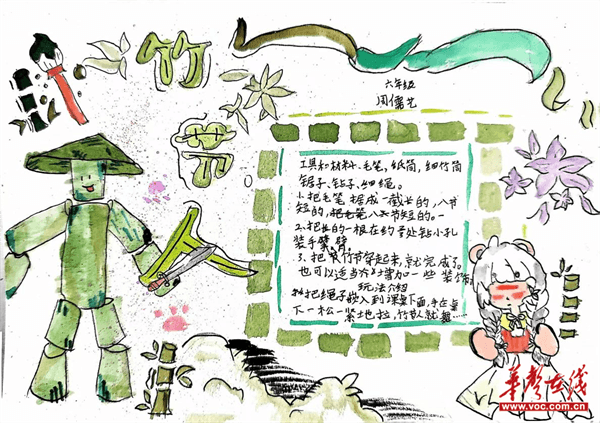 竹
节
人
六年级
周儒艺
工具和材料:毛笔,纸筒,细竹筒
锯子、钻子、细绳。
1、把毛笔 锯成一截长的,八节
短的,把毛笔八节短的。
2、把长的一根在约 处钻小孔
装手臂。
3、把 竹节穿起来,就完成了。
也可以适当 增加一些 装饰
玩法介绍
把绳子 入到课桌下面,手在桌
下一松一紧地拉,竹节人就 ……
华声在线
www.voc.com.cn